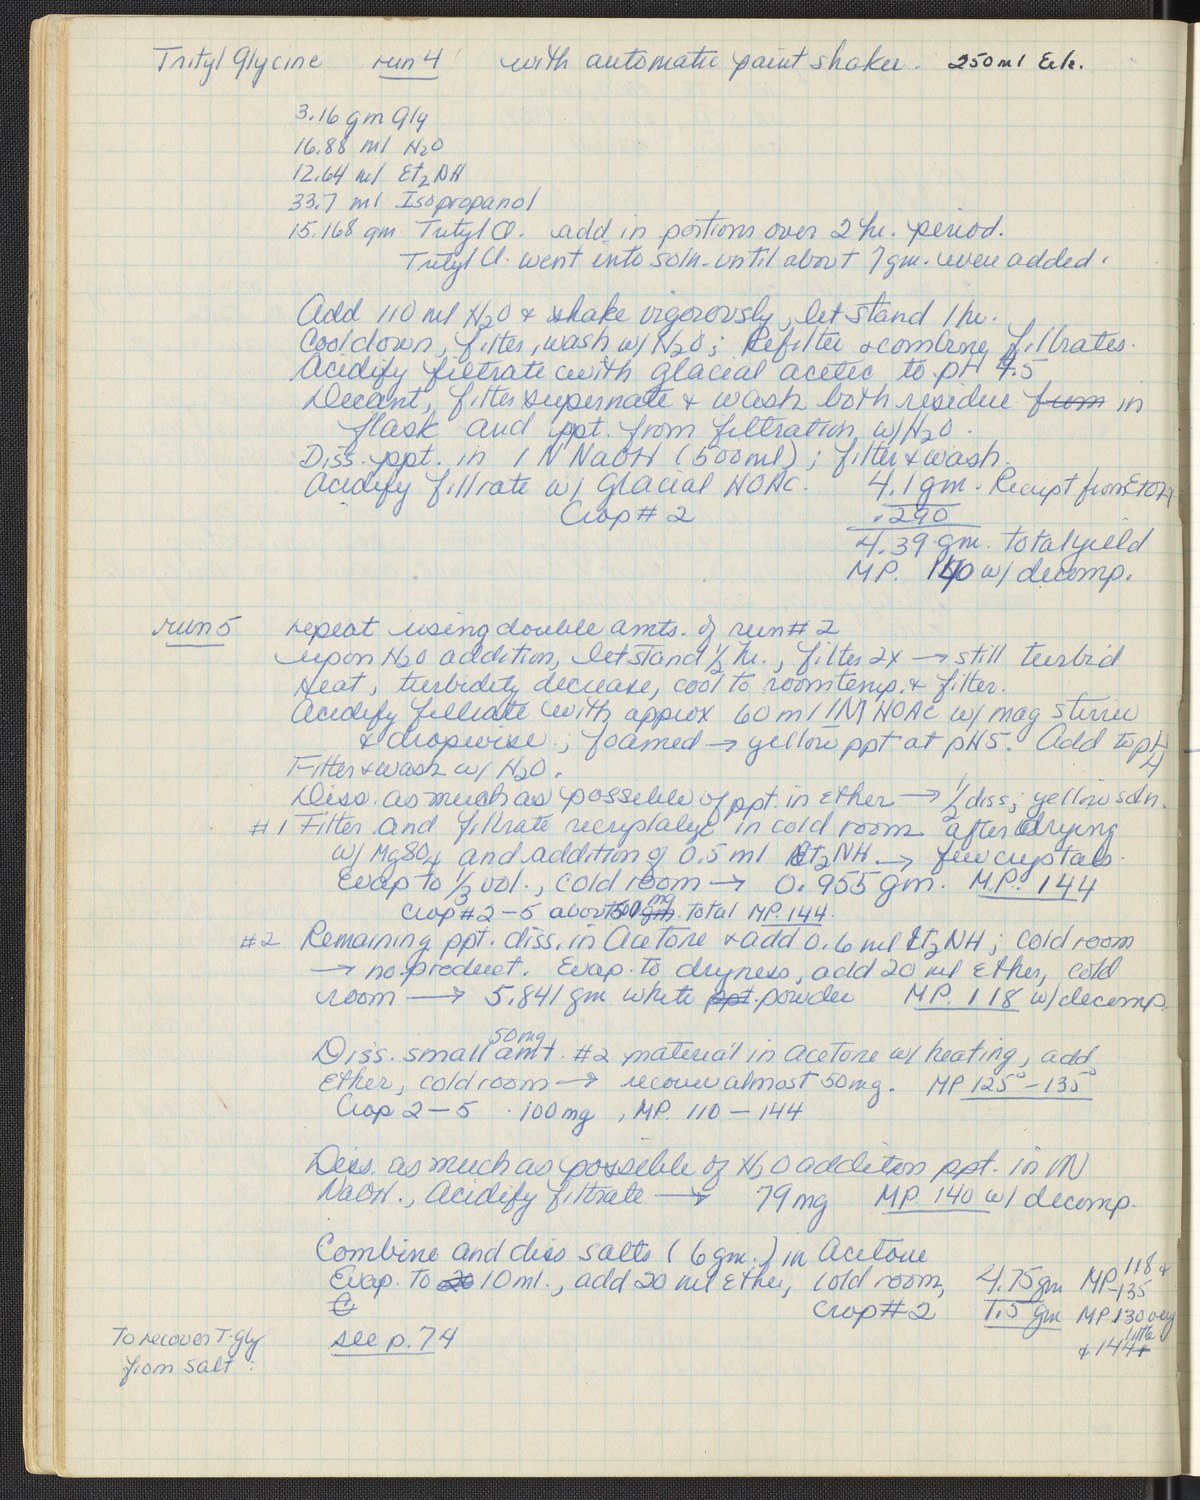 Trityl Glycine run 4 with automatic paint shaker. 250 ml Erle.
3.16 gm Gly
16.88 ml H2O
12.64 ml Et2NH
33.7 ml Isopropanol
15.168 gm Trityl Cl. add in portions over 2 hr. period.
Trityl Cl. went into soln. until about 7 gm. were added.
Add 110 ml H2O & shake vigorously, let stand 1 hr.
Cool down, filter, wash w/ H2O; Refilter & combine filtrates.
Acidify filtrate with glacial acetic to pH 4.5
Decant, filter supernate & wash both residue from in
flask and ppt. from filtration w/ H2O.
Diss. ppt. in 1 N NaOH (500 ml); filter & wash.
Acidify filtrate w/ Glacial HOAc. 4.1 gm. Recrypt from EtOH
Crop # 2 .290
4.39 gm. total yield
MP. 140 w/ decomp.
run 5 repeat using double amts. of run # 2
upon H2O addition, let stand 1/2 hr., filter 2x → still turbid
Heat, turbidity decrease, cool to room temp. & filter.
Acidify filtrate with approx 60 ml 1N HOAc w/ mag stirrer
& dropwise; foamed → yellow ppt at pH 5. Add to pH
4
Filter & wash w/ H2O.
Diss. as much as possible of ppt. in Ether → 1/2 diss; yellow soln.
# 1 Filter and filtrate recryptalyze in cold room after drying
w/ MgSO4 and addition of 0.5 ml Et2NH → few crystals.
Evap to 1/3 vol., cold room → 0.955 gm. MP. 144
Crop # 2 - 5 about 500 gm mg total MP. 144.
#2 Remaining ppt. diss. in Acetone & add 0.6 ml Et2NH; cold room
→ no product. Evap. to dryness, add 20 ml Ether, cold
room → 5.841 gm white ppt. powder MP. 118 w/ decomp
Diss. small amt. 50 mg #2 material in Acetone w/ heating, add
Ether, cold room → recover almost 50 mg. MP 125° - 135°
Crop 2 - 5 .100 mg, MP. 110 - 144
Diss. as much as possible of H2O addition ppt. in 1N
NaOH., Acidify filtrate → 79 mg MP. 140 w/ decomp.
Combine and diss salts (6 gm.) in Acetone
Evap. to 20 10 ml., add 20 ml Ether, cold room, 4.75 gm MP 118 & -135
C Crop # 2 1.5 gm MP 130 very little
& 144
To recover T-gly see p. 74
from salt: